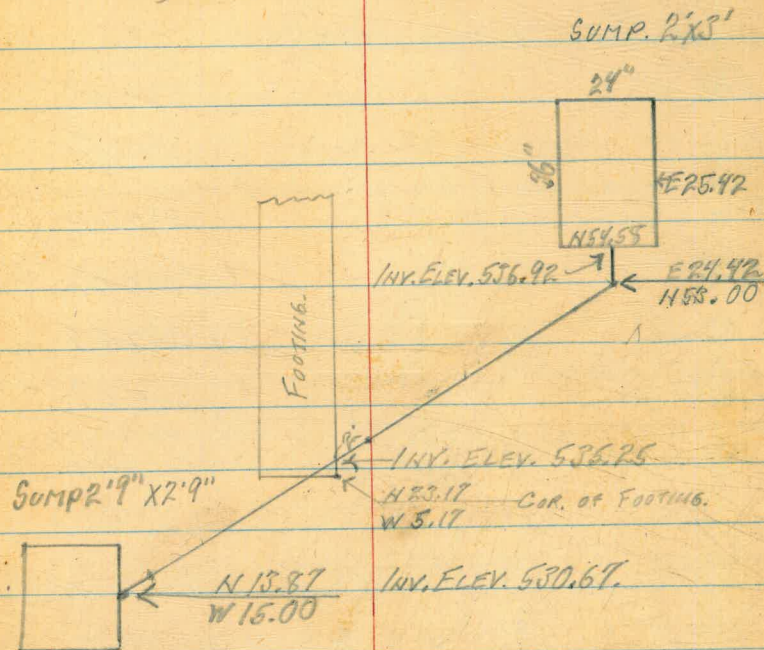 SUMP. 2'X3'
24"
36"
E25.42
N54.58
INV. ELEV. 536.92
E24.42
N53.00
FOOTING.
INV. ELEV. 535.25
SUMP 2'9" X 2'9"
N 23.17
W 5.17
COR. OF FOOTING.
N 13.87
W 15.00
INV. ELEV. 530.67.